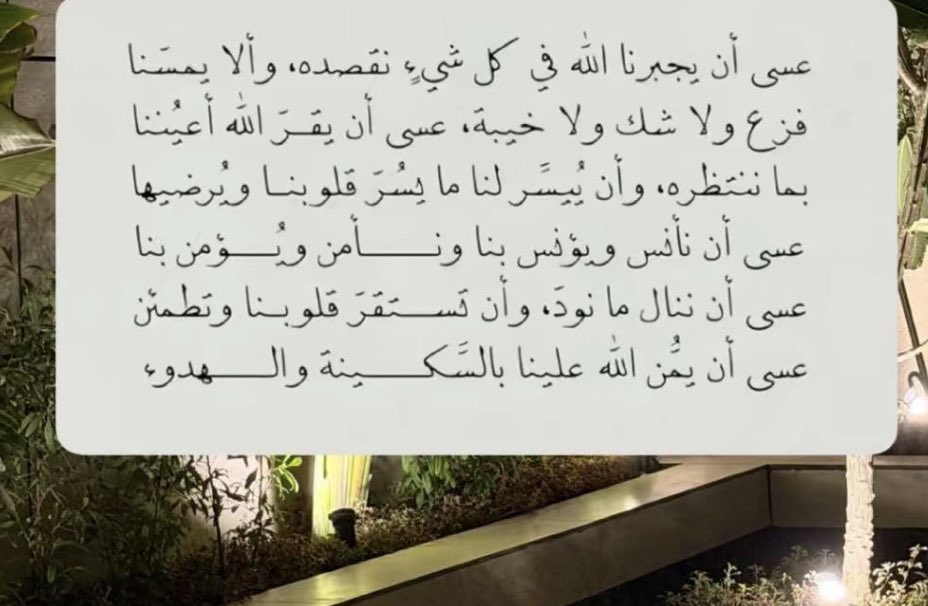 عسى أن يجبرنا الله في كل شيءٍ نقصده، وألا يمسَنا
فزع ولا شك ولا خيبة، عسى أن يقـــرَ الله أعيُننا
بما ننتظره، وأن يُيسَّر لنا ما يسُرَ قلوبنـــا ويُرضيها
عسى أن نأنس ويؤنس بنا ونـــــأمن ويُـــؤمن بنا
عسى أن ننال ما نودَ، وأن تســـتقرَ قلوبـــنا وتطمئن
عسى أن يمُّن الله علينا بالسَّكـــــينة والـــــهدوء